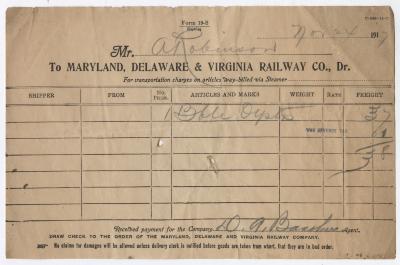 Form 19-S
Nov 24 1917
Mr. A Robinson
To MARYLAND, DELAWARE & VIRGINIA RAILWAY CO., Dr.
For transportation charges on articles way-billed via Steamer
SHIPPER FROM No. Pkgs. ARTICLES AND MARKS WEIGHT RATE FREIGHT
1 Bbl Oysters 37
WAR REVENUE TAX 1
38
Received payment for the Company, D. A. Agent.
DRAW CHECK TO THE ORDER OF THE MARYLAND, DELAWARE AND VIRGINIA RAILWAY COMPANY.
No claim for damages will be allowed unless delivery clerk is notified before goods are taken from wharf, that they are in bad order.